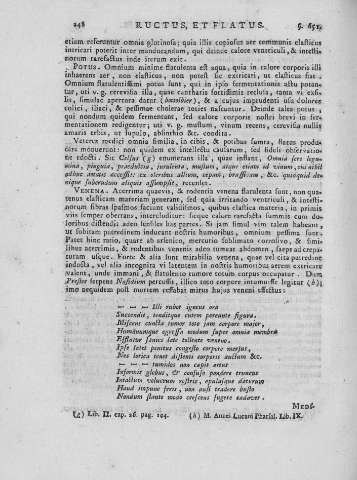 248 RUCTUS, ET FLATUS. §. 651.
etiam referuntur omnia glutinosa; quia illis copiosus aer communis elasticus
intricari poterit inter manducandum, qui deinde calore ventriculi, & intesti-
norum rarefactus inde iterum exit.
POTUS. Omnium minime flatulenta est aqua, quia in calore corporis illi
inhaerens aer, non elasticus, non potest sic extricari, ut elasticus fiat.
Omnium flatulentissimi potus sunt, qui in ipso fermentationis actu potan-
tur, uti v. g. cerevisia illa, quae cantharis fortissimis reclusa, cum
in, simulac apertura datur & a cujus imprudenti usu dolores
colici, iliaci, & pessimae cholerae toties nascuntur. Deinde tales potus,
qui nondum quidem fermentant, sed calore corporis nostri brevi in fer-
mentationem rediguntur; uti v. g. mustum, vinum recens, cerevisia nullis
amaris erbis, ut lupulo, absinthio &c. condita.
Veteres medici omnia similia, in cibis, & potibus sumta, flatus produ-
cere noverunt: non quidem ex intellectu causarum, sed fidelis observatio-
ne edocti. Sic Celsus (g) enumerans illa, quae inflant, Omnia fere legu-
mina, pinguia, praedulcia, jurulenta, mustum, atque etiam id vinum, cui nihil
adhuc aetatis accessit: ex oleribus allium, cepam, brassicam, &c. quicquid de-
nique suberudum aliquis assumpsit, recenset.
VENENA. Acerrima quaevis, & rodentia venena flatulenta sunt, non qua-
tenus elasticam materiem generant, sed quia irritando ventriculi, & intesti-
norum fibras spasticos faciunt validissimos, quibus elastica materies, in primis
viis semper oberrans, intercluditur: sicque calore rarefacta summis cum do-
loribus distendit adeo sensiles has partes. Si jam simul vim talem habeant,
ut subitam putredinem inducant nostris humoribus, omnium pessima sunt.
Patet hinc ratio, quare ab arsenico, mercurio sublimato corrosivo, & simi-
libus acerrimis, & rodentibus venenis adeo tumeat abdomen, saepe ad crepa-
turam usque. Forte & alia sunt mirabilia venena, quae vel cita putredine
inducta, vel alia incognita vi latentem in nostris humoribus aerem extricare
valent, unde immani, & flatulento tumore totum corpus occupatur. Dum
Prester serpens Nasidium percussit, illico toto corpore intumuisse legitur (h);
imo nequidem post mortem cessabat mirus hujus veneni effectus:
— — — Illi rubor igneus ora
Succendit, tenditque cutem pereunte figura.
Miscens cuncta tumor toto jam corpore major,
Humanumque egressa modum super omnia membra
Efflatur sanies late tollente veneno.
Ipse latet penitus congesto corpore mersus,
Nec lorica tenet distenti corporis auctum &c.
— — — tumulos non capit artus
Informis globus, & confuso pondere truncus
Intactum volucrum rostris, epulasque daturum
Haud impune feris, non ausi tradere busto
Nondum stante modo crescens fugere cadaver.
MEDI-
(g) Lib. II. cap. 26. pag. 104. (h) M. Annei Lucani Pharsal. Lib. IX.